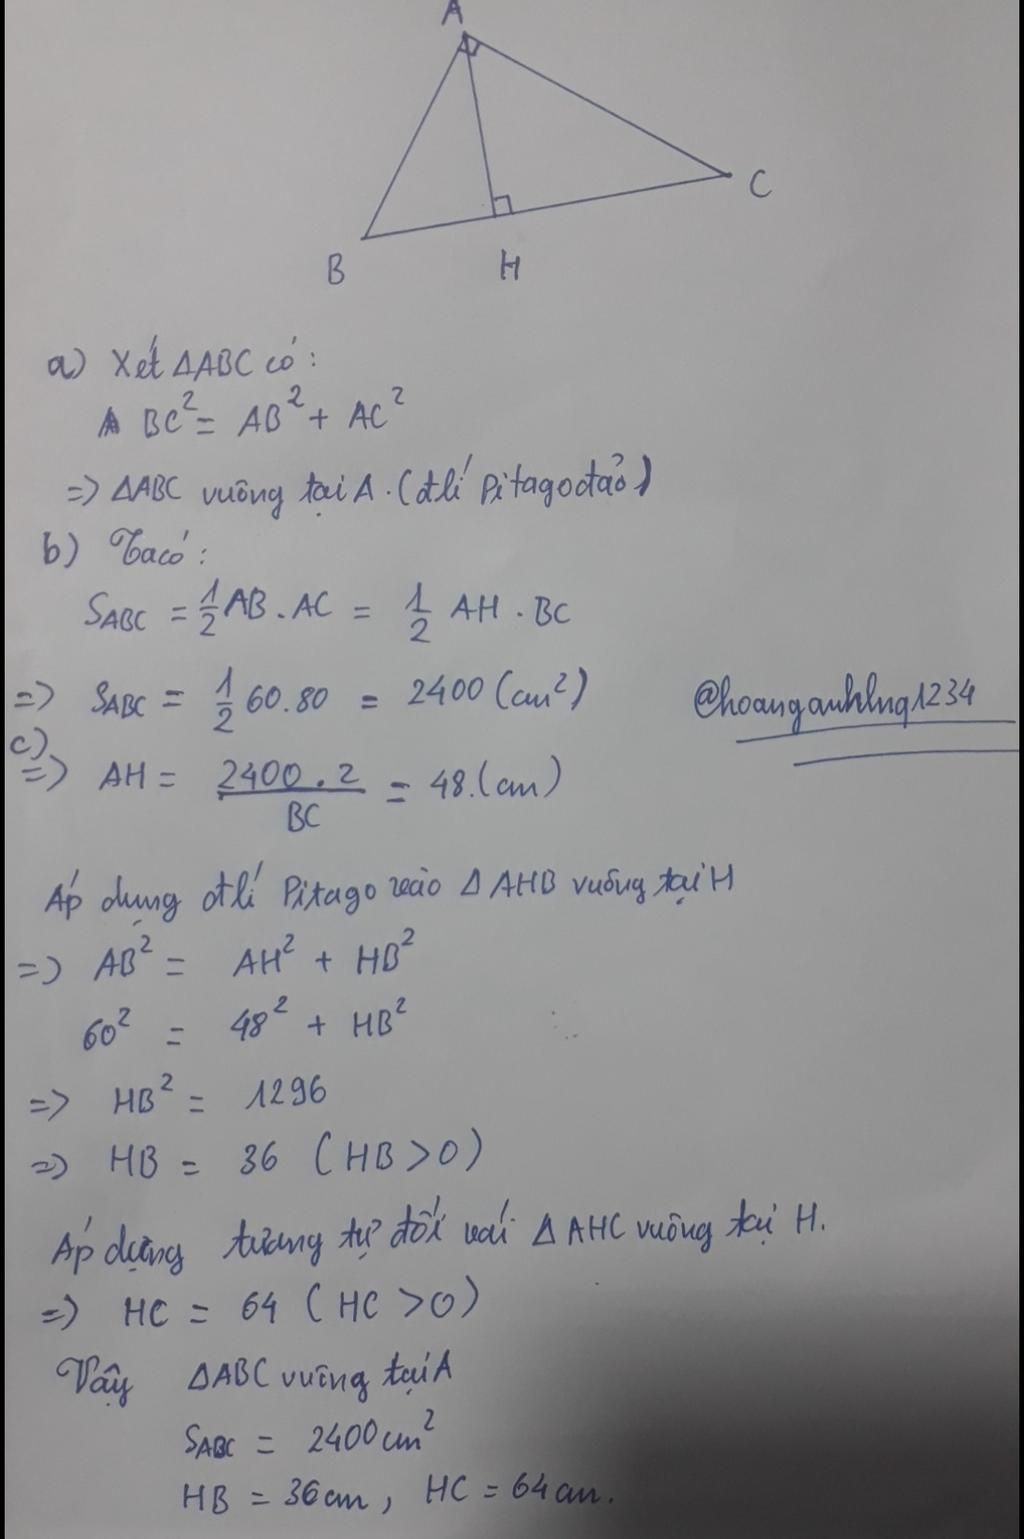 A
C
B
H
a) Xét ΔABC có:
BC² = AB² + AC²
=> ΔABC vuông tại A. (đlí Pitago đảo)
b) Ta có:
SABC = 1/2 AB . AC = 1/2 AH . BC
=> SABC = 1/2 60.80 = 2400 (cm²)
@hoanganhlnq1234
c)
=> AH = 2400.2/BC = 48.(cm)
Áp dụng đlí Pitago vào Δ AHB vuông tại H
=> AB² = AH² + HB²
60² = 48² + HB²
=> HB² = 1296
=> HB = 36 (HB>0)
Áp dụng tương tự đối với Δ AHC vuông tại H.
=> HC = 64 (HC >0)
Vậy ΔABC vuông tại A
SABC = 2400cm²
HB = 36cm, HC = 64cm.